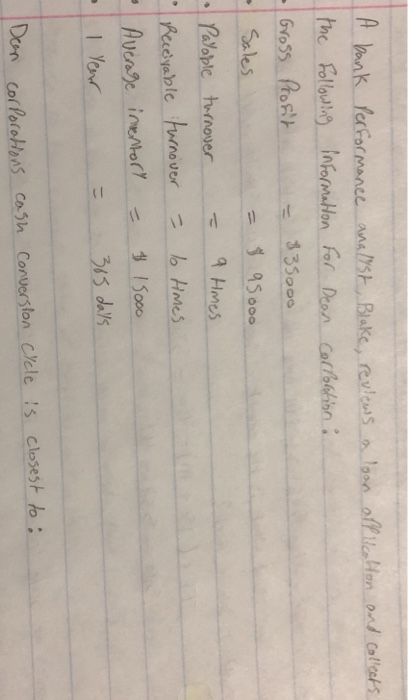 A bank Performance analyst, Blake, reviews a loan application and collects
the following information for Dean Corporation:
• Gross Profit = $35000
• Sales = $ 95000
• Payable turnover = 9 times
• Receivable turnover = 6 times
• Average inventory = $ 15000
• 1 Year = 365 days
Dean corporations cash conversion cycle is closest to: